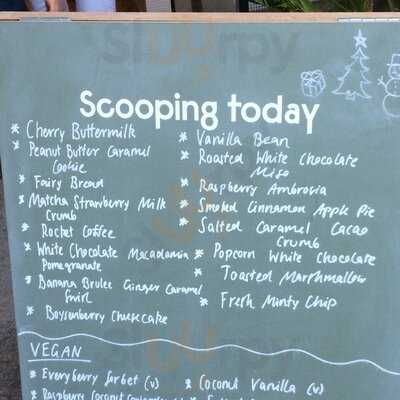 Scooping today
* Cherry Buttermilk
* Peanut Butter Caramel
Cookie
* Fairy Bread
* Matcha Strawberry Milk
Crumb
* Rocket Coffee
* White Chocolate Macadamia
Pomegranate
* Banana Brulee Ginger Caramel
Swirl
* Boysenberry Cheesecake
* Vanilla Bean
* Roasted White Chocolate
Miso
* Raspberry Ambrosia
* Smoked Cinnamon Apple Pie
* Salted Caramel Cacao
Crumb
* Popcorn White Chocolate
* Toasted Marshmallow
* Fresh Minty Chip
VEGAN
* Everyberry Sorbet (v)
* Raspberry Coconut
* Coconut Vanilla (v)